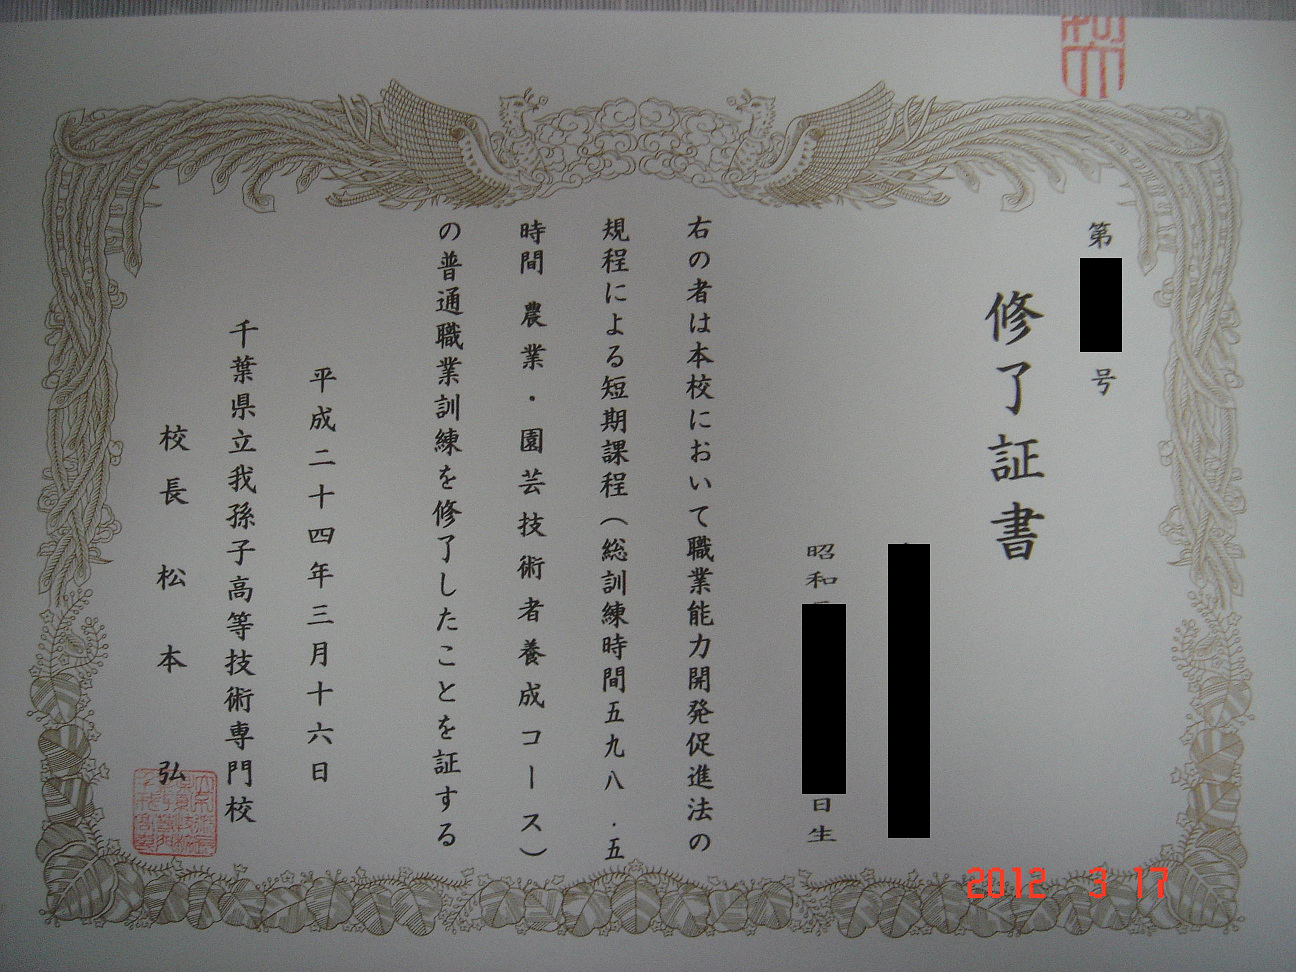 第 号
修了証書
昭和 日生
右の者は本校において職業能力開発促進法の
規程による短期課程（総訓練時間五九八．五
時間 農業・園芸技術者養成コース）
の普通職業訓練を修了したことを証する
平成二十四年三月十六日
千葉県立我孫子高等技術専門校
校長 松本 弘
2012 3 17